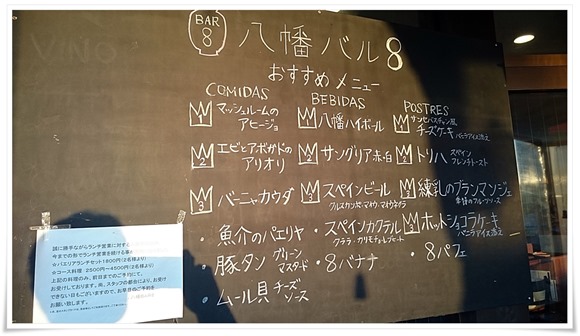 BAR
8
八幡バル8
おすすめメニュー
COMIDAS
1 マッシュルームの
アヒージョ
2 エビとアボガドの
アリオリ
3 バーニャカウダ
・魚介のパエリヤ
・豚タン グリーン
マスタード
・ムール貝 チーズ
ソース
BEBIDAS
1 八幡ハイボール
2 サングリア赤・白
3 スペインビール
・スペインカクテル
・8バナナ
POSTRES
1 サンセバスチャン風
チーズケーキ
バニラアイス添え
2 トリハ スペイン
フレンチトースト
3 練乳のブランマンジェ
季節のフルーツソース
ホットショコラケーキ
バニラアイス添え
・8パフェ
誠に勝手ながらランチ営業に対する
今までの形でランチ営業を続ける事
☆パエリアランチセット1800円(2名様より)
☆コース料理 2500円~4500円(2名様より)
上記の料理のみ、前日までのご予約にて、
お受けしております。尚、スタッフの都合により、お受け
できない日もございますので、お早目のご予約を
お願い致します。